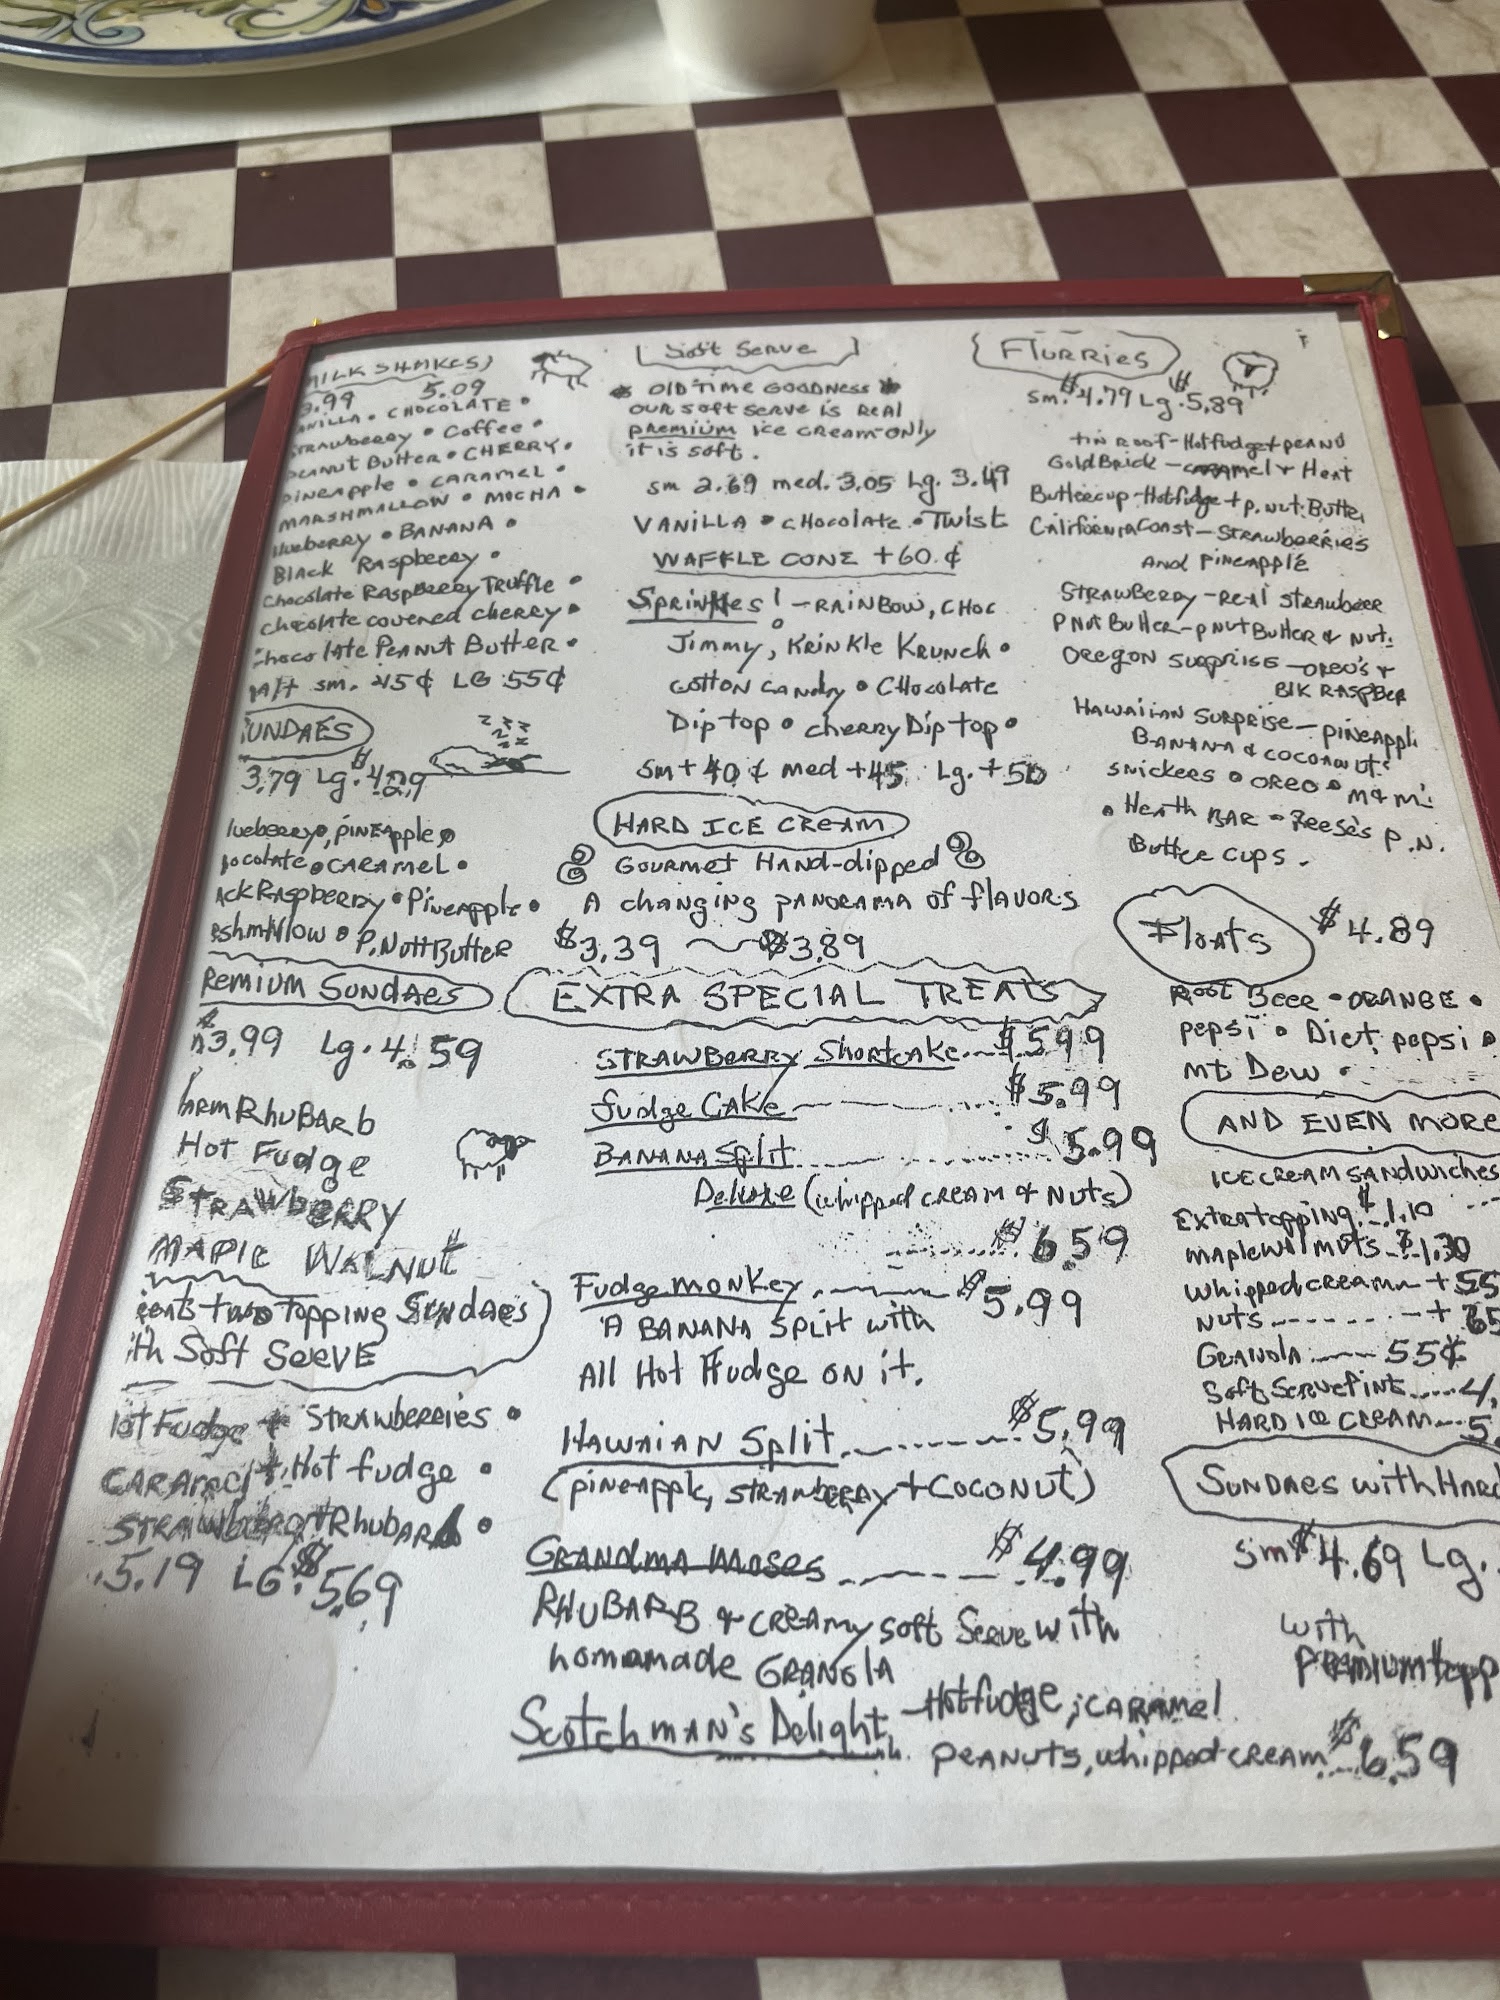 MILK SHAKES
3.99 5.09
VANILLA • CHOCOLATE •
STRAWBERRY • COFFEE •
PEANUT BUTTER • CHERRY •
PINEAPPLE • CARAMEL •
MARSHMALLOW • MOCHA •
BLUEBERRY • BANANA •
BLACK RASPBERRY •
CHOCOLATE RASPBERRY TRUFFLE •
CHOCOLATE COVERED CHERRY •
CHOCOLATE PEANUT BUTTER •
sm. 45¢ LG 55¢
SUNDAES
3.79 Lg. $4.29
lueberry, PINEApple
hocolate • CARAMEL •
ACK RASPBERRY • PINEAPPLE •
rshmallow • P.NUTT BUTTER
PREMIUM SUNDAES
$3.99 Lg. 4.59
RHUBARB
HOT FUDGE
STRAWBERRY
MAPLE WALNUT
TWO TOPPING SUNDAES
ith SOFT SERVE
HOT FUDGE + STRAWBERRIES •
CARAMEL + HOT FUDGE •
RHUBARB •
5.19 LG. $5.69
SOFT SERVE
OLD TIME GOODNESS
OUR SOFT SERVE IS REAL
PREMIUM ICE CREAM-ONLY
it is soft.
sm 2.69 med. 3.05 Lg. 3.49
VANILLA • CHOCOLATE • TWIST
WAFFLE CONE +60.¢
SPRINKLES! - RAINBOW, CHOC
Jimmy, KRINKLE KRUNCH •
COTTON CANDY • CHOCOLATE
DIP TOP • CHERRY DIP TOP •
Sm + 40¢ med +45 Lg. +50
HARD ICE CREAM
GOURMET HAND-dipped
A changing PANORAMA of flavors
$3.39 ~ $3.89
EXTRA SPECIAL TREATS
STRAWBERRY Shortcake...$5.99
Fudge CAKE - - - $5.99
BANANA Split....$5.99
Deluxe (whipped CREAM & NUTS)
......$6.59
Fudge monkey.---$5.99
A BANANA SPLIT with
All Hot Fudge ON it.
HAWAIAN Split.----$5.99
(pineapple, STRAWBERRY + COCONUT)
GRANDMA MOSES ---- $4.99
RHUBARB & CREAMY SOFT SERVE with
homamade GRANOLA
Scotchman's Delight - Hot fudge, CARAMEL
PEANUTS, whipped CREAM...$6.59
FLURRIES
Sm. $4.79 Lg. $5.89
TIN ROOF-Hotfudge + PEANU
GOLDBRICK - CARAMEL + Heat
Buttercup-Hotfudge + p.nut. Butte
CALIFORNIA COAST - STRAWBERRIES
AND PINEAPPLE
STRAWBERRY-REAL STRAWBEER
P NUT BUTTER-P NUT BUTTER & NUT.
OREGON SURPRISE - OREO'S +
BLK RASPBER
HAWAIIAN SURPRISE - PINEAPPL
BANANA & COCONUT.
SNICKERS • OREO • M&M
• Heath BAR - Reese's P.N.
Butter cups.
Floats $4.89
Root Beer • ORANGE •
pepsi • Diet pepsi •
mt Dew •
AND EVEN MORE
ICE CREAM SANDWICHES
EXTRA TOPPING.-$1.10
MAPLE WALNUTS-$1.30
Whipped CREAM-+55
NUTS-------+65
GRANOLA.---55¢
SOFT SERVE PINT.....4.
HARD ICE CREAM---5.
SUNDAES WITH HARD
Sm $4.69 Lg.
with
PREMIUM topp